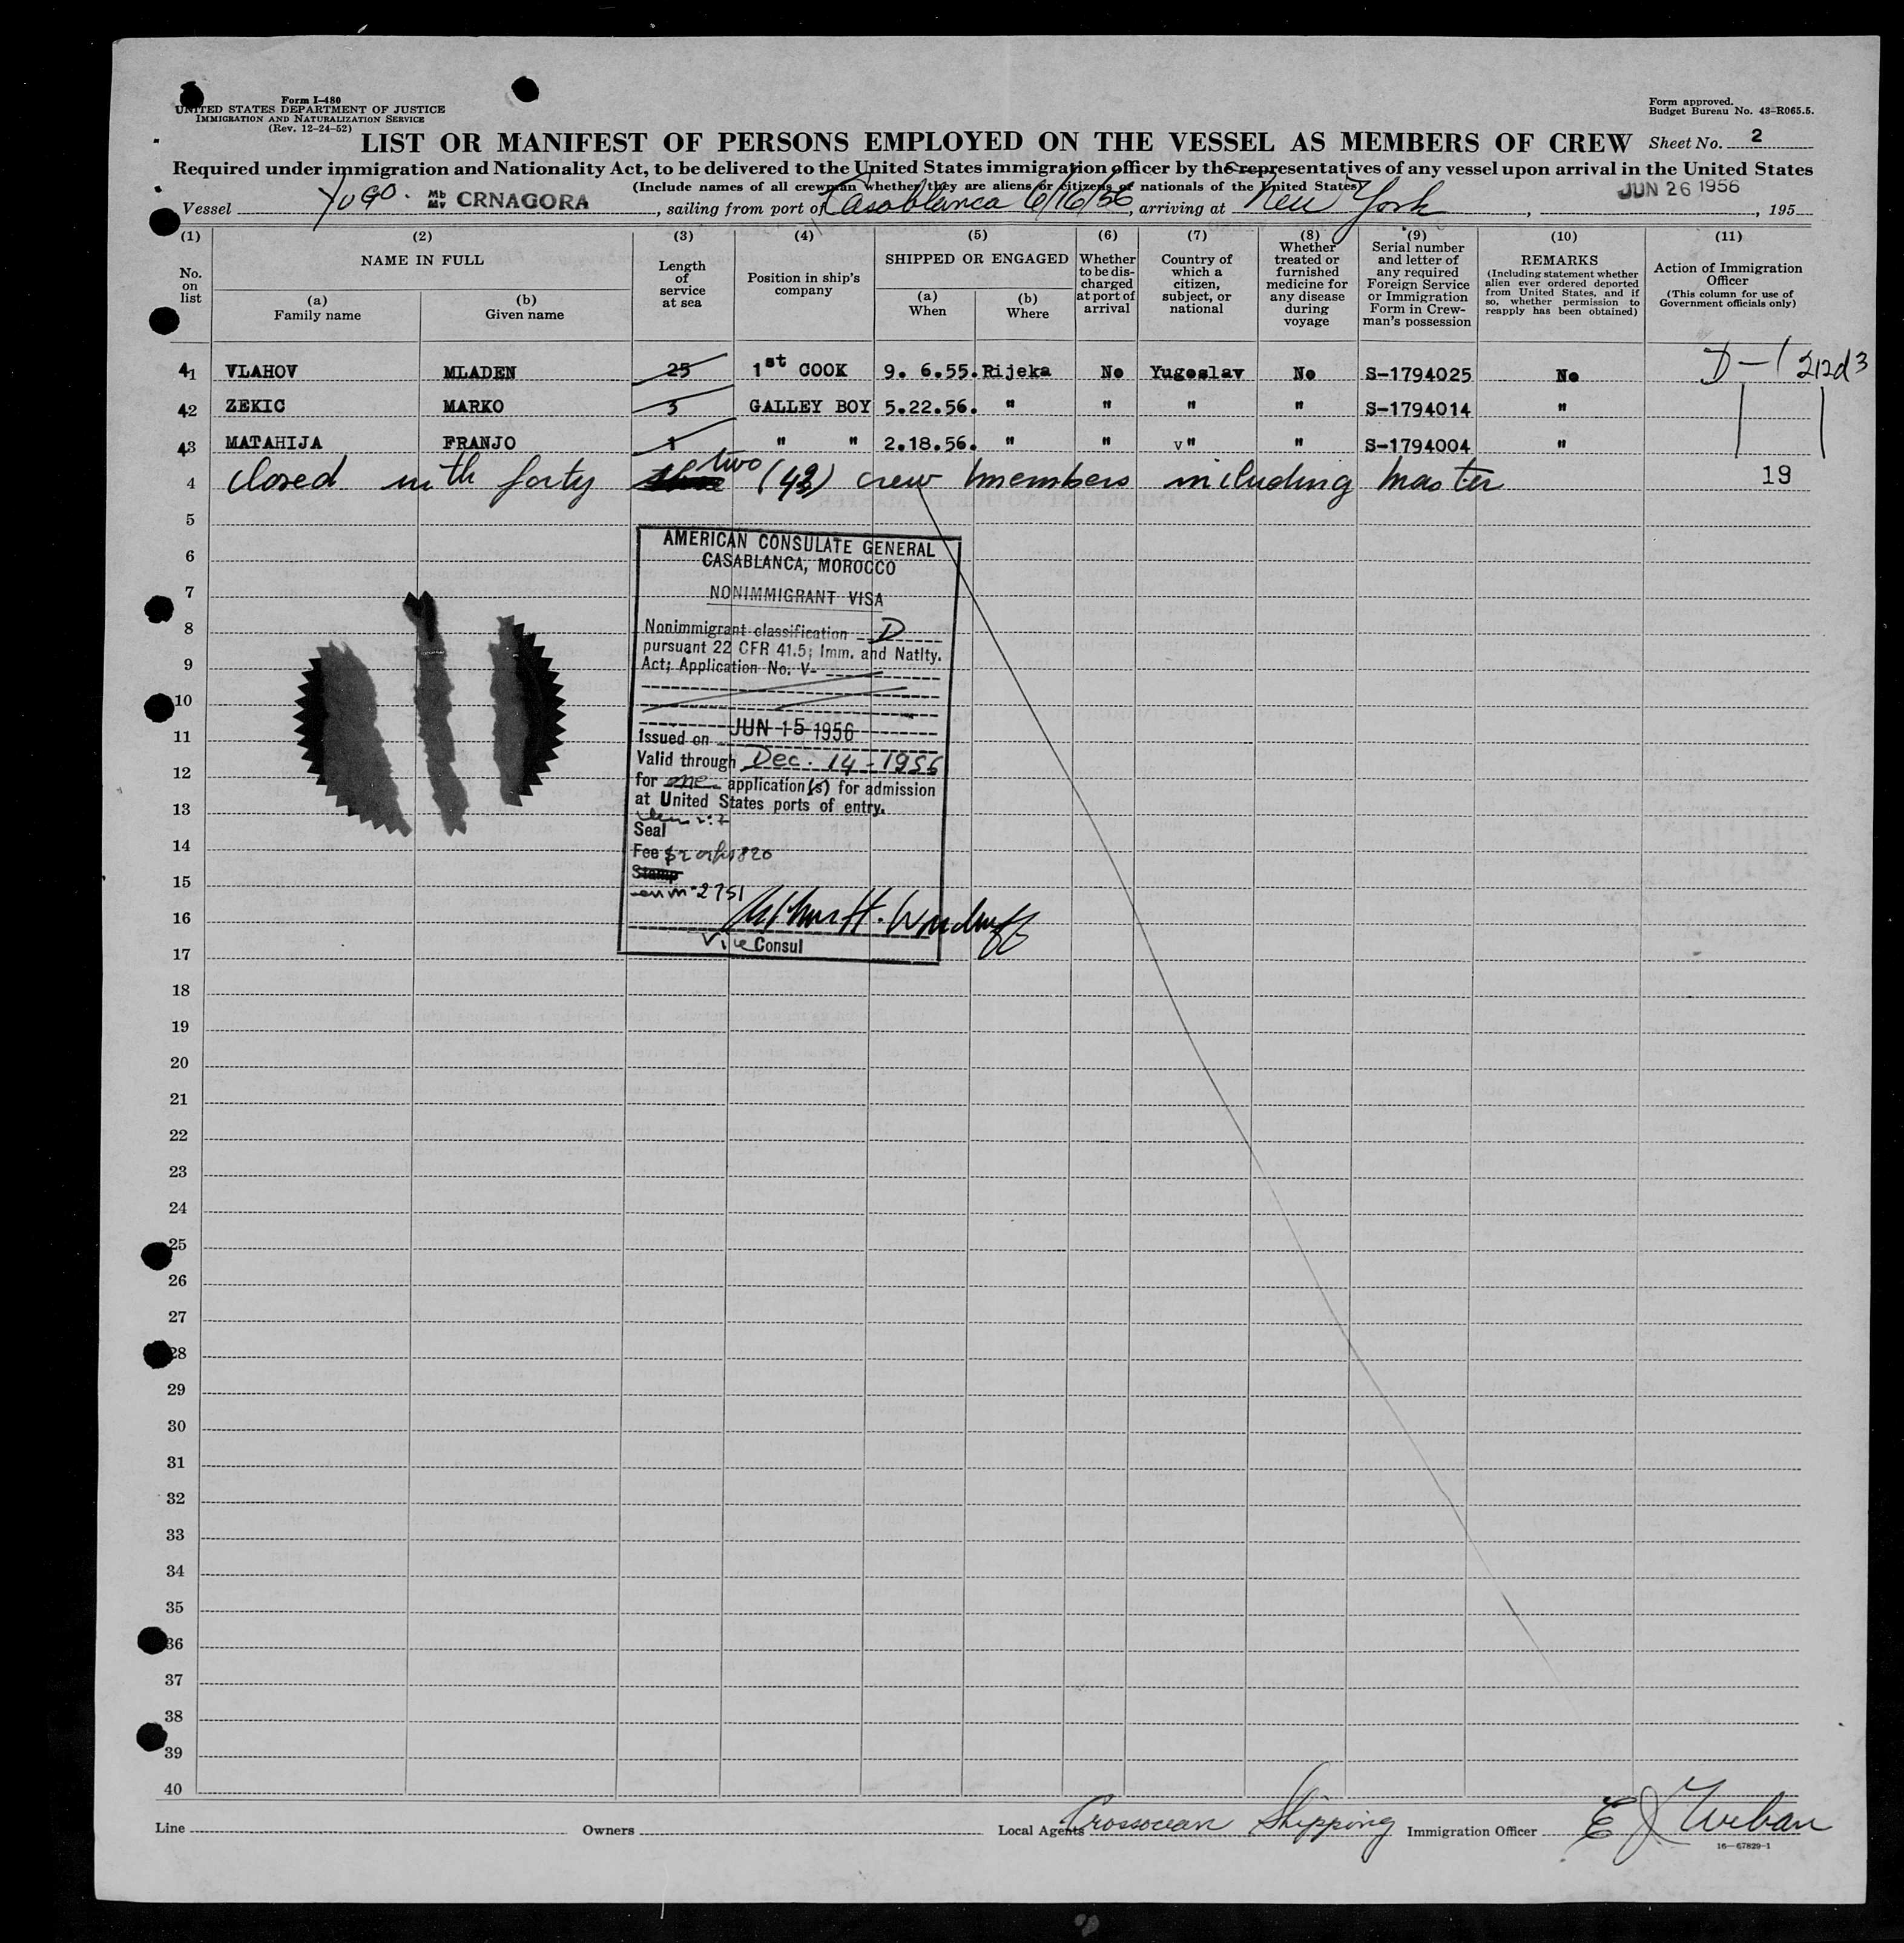 Form I-480
UNITED STATES DEPARTMENT OF JUSTICE
IMMIGRATION AND NATURALIZATION SERVICE
(Rev. 12-24-52)
Form approved.
Budget Bureau No. 43-R065.5.
LIST OR MANIFEST OF PERSONS EMPLOYED ON THE VESSEL AS MEMBERS OF CREW Sheet No. 2
Required under immigration and Nationality Act, to be delivered to the United States immigration officer by the representatives of any vessel upon arrival in the United States
(Include names of all crewman whether they are aliens or citizens or nationals of the United States)
Vessel YUGO. Mb Mv CRNAGORA, sailing from port of Casablanca 6/16/56, arriving at New York, JUN 26 1956, 195
(1) (2) (3) (4) (5) (6) (7) (8) (9) (10) (11)
No. on list
NAME IN FULL
(a) Family name
(b) Given name
Length of service at sea
Position in ship's company
SHIPPED OR ENGAGED
(a) When
(b) Where
Whether to be discharged at port of arrival
Country of which a citizen, subject, or national
Whether treated or furnished medicine for any disease during voyage
Serial number and letter of any required Foreign Service or Immigration Form in Crewman's possession
REMARKS
(Including statement whether alien ever ordered deported from United States, and if so, whether permission to reapply has been obtained)
Action of Immigration Officer
(This column for use of Government officials only)
41 VLAHOV MLADEN 25 1st COOK 9. 6.55. Rijeka No Yugoslav No S-1794025 No D-1 212d3
42 ZEKIC MARKO 3 GALLEY BOY 5.22.56. " " " " S-1794014 "
43 MATAHIJA FRANJO 1 " " 2.18.56. " " v" " S-1794004 "
4 closed with forty two (42) crew members including master 19
5
6
7
8
9
10
11
12
13
14
15
16
17
18
19
20
21
22
23
24
25
26
27
28
29
30
31
32
33
34
35
36
37
38
39
40
AMERICAN CONSULATE GENERAL
CASABLANCA, MOROCCO
NONIMMIGRANT VISA
Nonimmigrant classification D
pursuant 22 CFR 41.5; Imm. and Natlty.
Act; Application No. V-
Issued on JUN 15 1956
Valid through Dec. 14 - 1956
for one application(s) for admission
at United States ports of entry.
Seal
Fee $2 820
Stamp
2751
Vice Consul
Line
Owners
Local Agents Crossocean Shipping
Immigration Officer E J Urban
16-67829-1